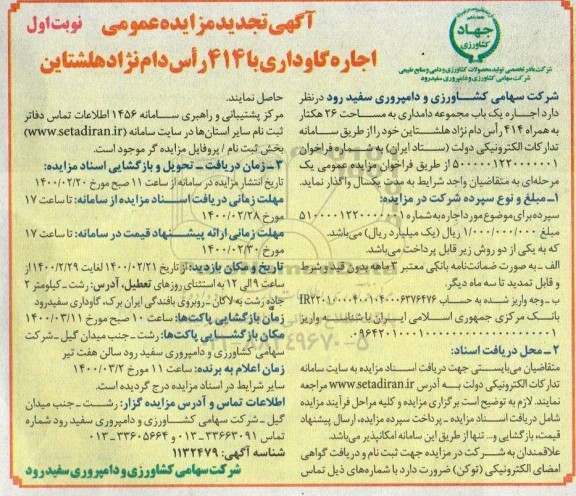 آگهی تجدید مزایده عمومی
نوبت اول
اجاره گاوداری با ۴۱۴ رأس دام نژاد هلشتاین
جهاد
کشاورزی
شرکت مادر تخصصی تولید محصولات کشاورزی و دامی و منابع طبیعی
شرکت سهامی کشاورزی و دامپروری سفیدرود
شرکت سهامی کشاورزی و دامپروری سفید رود در نظر
دارد اجاره یک باب مجموعه دامداری به مساحت ۲۶ هکتار
به همراه ۴۱۴ رأس دام نژاد هلشتاین خود را از طریق سامانه
تدارکات الکترونیکی دولت (ستاد ایران) به شماره فراخوان
۵۰۰۰۰۰۱۲۲۰۰۰۰۰۱ از طریق فراخوان مزایده عمومی یک
مرحله‌ای به متقاضیان واجد شرایط به مدت یکسال واگذار نماید.
۱ـ مبلغ و نوع سپرده شرکت در مزایده:
سپرده برای موضوع مورد اجاره به شماره ۵۱۰۰۰۰۱۲۲۰۰۰۰۰۱
مبلغ ۱/۰۰۰/۰۰۰/۰۰۰ ریال (یک میلیارد ریال) می‌باشد.
که به یکی از دو روش زیر قابل پرداخت می‌باشد.
الف ـ به صورت ضمانت‌نامه بانکی معتبر ۳ ماهه بدون قید و شرط
و قابل تمدید تا سه ماه دیگر.
ب ـ وجه واریز شده به حساب
بانک مرکزی جمهوری اسلامی ایران با شناسه واریز
۲ـ محل دریافت اسناد:
متقاضیان می‌بایستی جهت دریافت اسناد مزایده به سامانه
تدارکات الکترونیکی دولت به آدرس www.setadiran.ir مراجعه
نمایند. لازم به توضیح است برگزاری مزایده و کلیه مراحل فرآیند مزایده
شامل دریافت اسناد مزایده ـ پرداخت سپرده مزایده، ارسال پیشنهاد
قیمت، بازگشایی و.. تنها از طریق این سامانه امکانپذیر می‌باشد.
علاقمندان به شرکت در مزایده جهت ثبت نام و دریافت گواهی
امضای الکترونیکی (توکن) ضرورت دارد با شماره‌های ذیل تماس
حاصل نمایند.
مرکز پشتیبانی و راهبری سامانه ۱۴۵۶ اطلاعات تماس دفاتر
ثبت نام سایر استان‌ها در سایت سامانه (www.setadiran.ir)
بخش ثبت نام / پروفایل مزایده گر موجود است.
۳ـ زمان دریافت ـ تحویل و بازگشایی اسناد مزایده:
تاریخ انتشار مزایده در سامانه از ساعت ۱۱ صبح مورخ ۱۴۰۰/۰۲/۲۰
مهلت زمانی دریافت اسناد مزایده از سامانه: تا ساعت ۱۷
مورخ ۱۴۰۰/۰۲/۲۸
مهلت زمانی ارائه پیشنهاد قیمت در سامانه: تا ساعت ۱۷
مورخ ۱۴۰۰/۰۲/۳۰
تاریخ و مکان بازدید: از تاریخ ۱۴۰۰/۰۲/۲۱ لغایت ۱۴۰۰/۲/۲۹ از
ساعت ۹ الی ۱۲ به استثنای روزهای تعطیل، آدرس: رشت ـ کیلومتر ۲
جاده رشت به لاکان ـ روبروی بافندگی ایران برک، گاوداری سفیدرود
زمان بازگشایی پاکت‌ها: ساعت ۱۰ صبح مورخ ۱۴۰۰/۰۳/۱۱
مکان بازگشایی پاکت‌ها: رشت ـ جنب میدان گیل ـ شرکت
سهامی کشاورزی و دامپروری سفید رود سالن هفت تیر
زمان اعلام به برنده: ساعت ۱۱ مورخ ۱۴۰۰/۰۳/۲
سایر شرایط در اسناد مزایده درج گردیده است.
اطلاعات تماس و آدرس مزایده گزار: رشت ـ جنب میدان
گیل ـ شرکت سهامی کشاورزی و دامپروری سفید رود شماره
تماس ۳۳۶۶۳۰۹۱-۰۱۳ و ۳۳۶۰۵۶۶۴-۰۱۳
شناسه آگهی: ۱۱۳۲۴۷۹
شرکت سهامی کشاورزی و دامپروری سفید رود